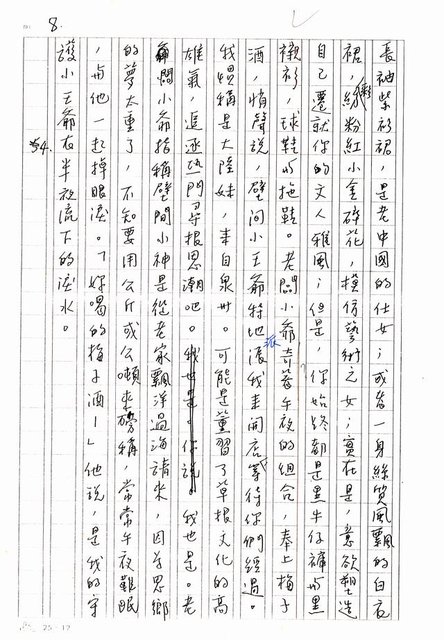 8.
長袖紫衫裙，是老中國的仕女；或者一身絲質風飄的白衣
裙，緞粉紅小金碎花，模仿藝術之女；實在是，意欲塑造
自己遷就你的文人雅風；但是，你始終都是黑牛仔褲與黑
襯衫，球鞋或拖鞋。老闆小爺 午夜的組合，奉上梅子
酒，悄聲說，壁間小王爺特地派我來開店等待你們經過。
我慣稱是大陸妹，來自泉州。可能是薰習了草根文化的高
雄氣，追逐熱門尋根思潮吧。我也是。老
闆小爺指稱壁間小神是從老家飄洋過海請來，因為思鄉
的夢太重了，不知要用公斤或公噸來磅稱，常常午夜難眠
，與他一起掉眼淚。「好喝的梅子酒！」他說，是我的守
護小王爺在半夜流下的淚水。
54.
25×12